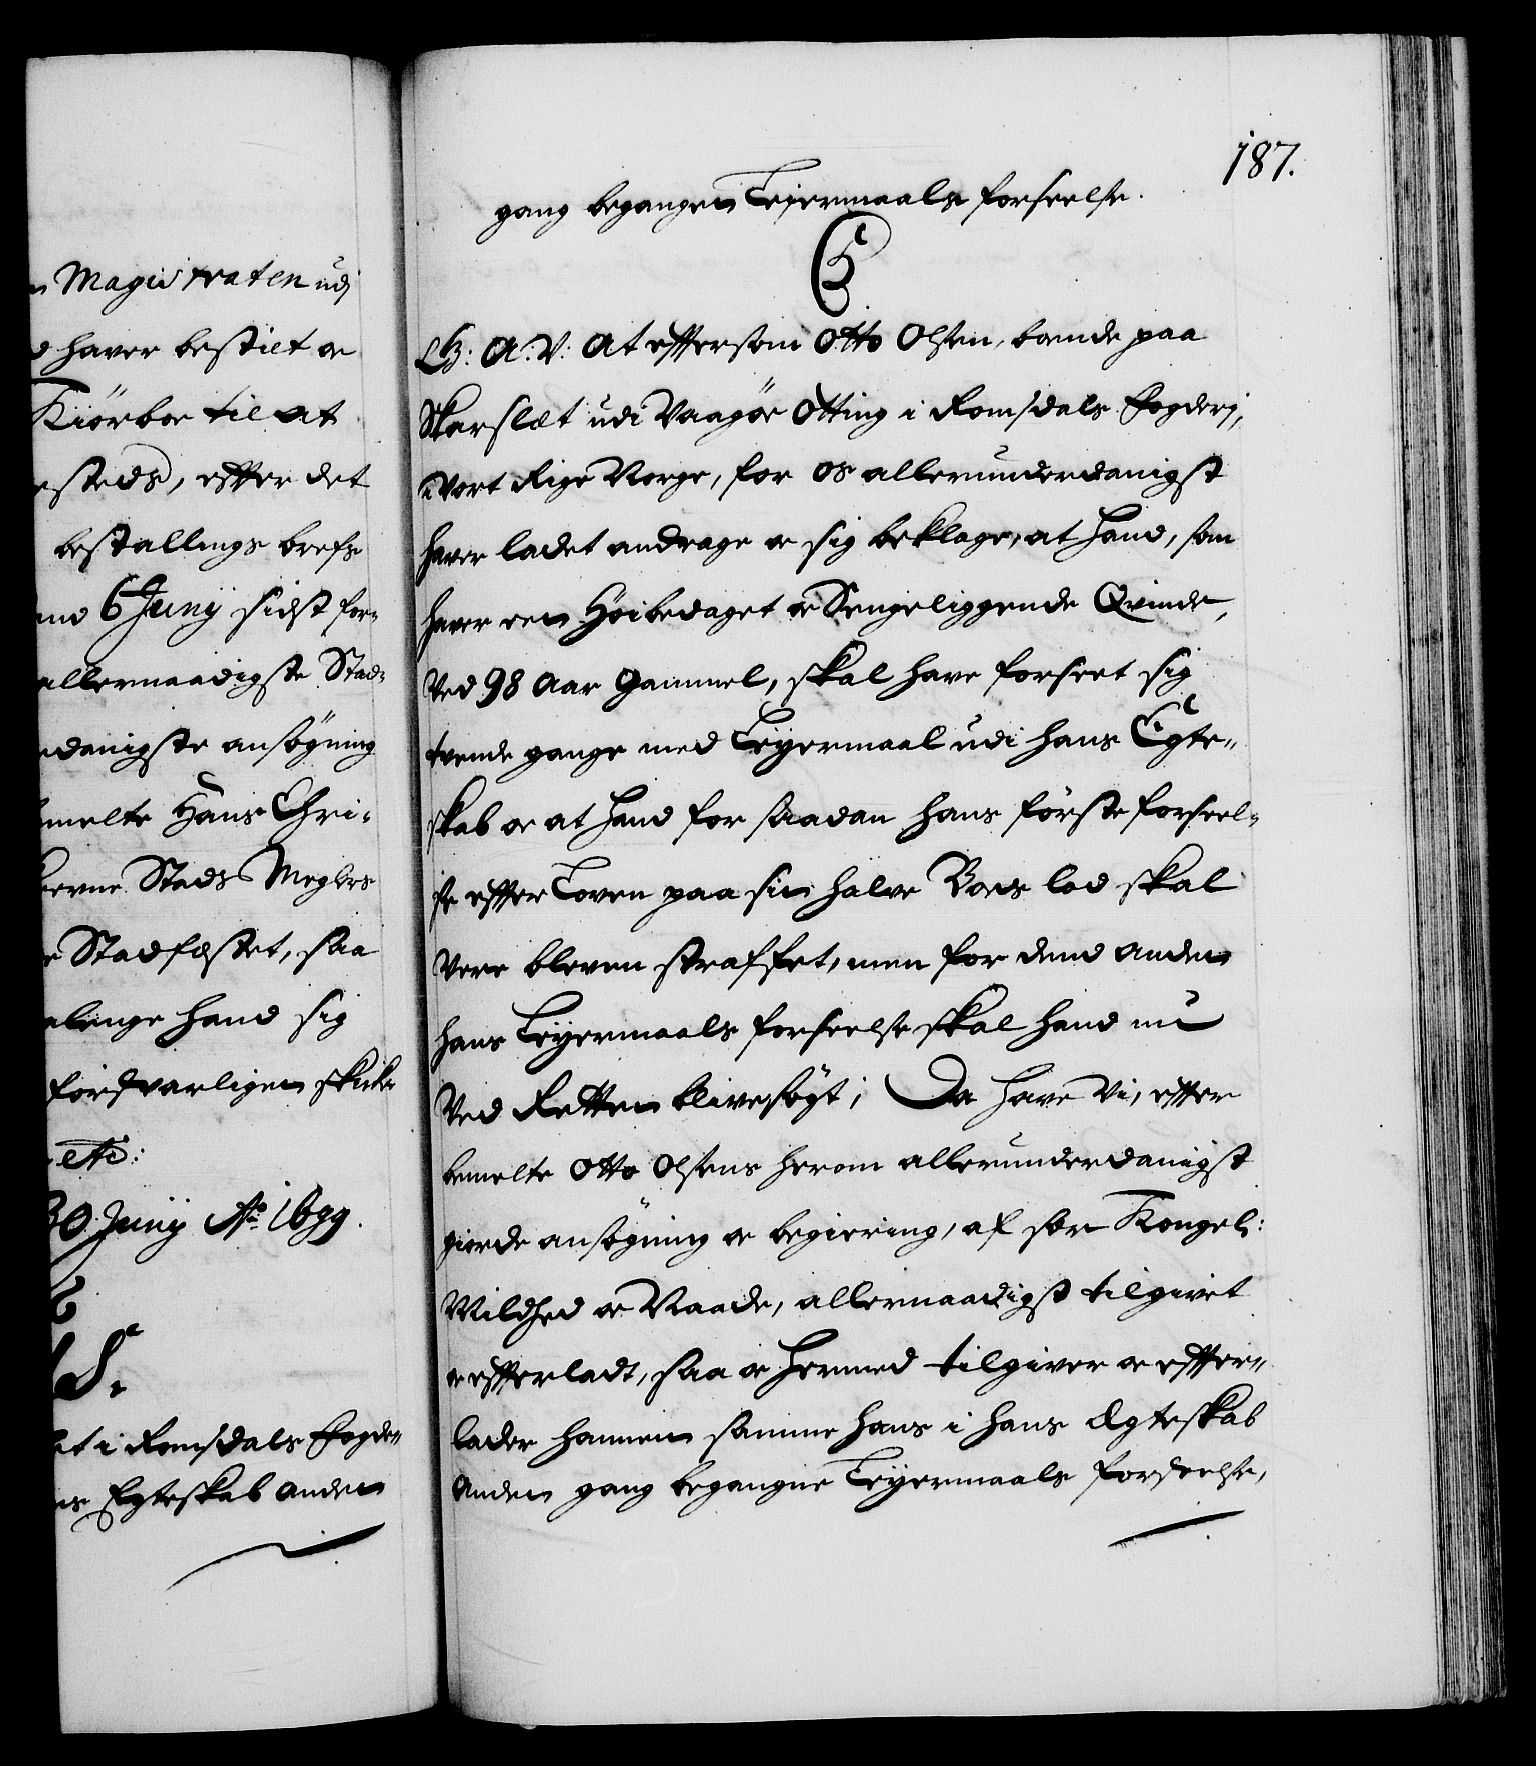 n Magistraten udj
d haver bestilt oc
Kiörboe til at
esteds, efter det
bestallings brefs
end 6 Junij sidst for-
allernaadigste Stad-
edanigste ansögning
melte Hans Chri-
Stads Meglers
e Stadfæstet, saa
elenge hand sig
forsvarligen skicker
etc:
30 Junij Ao 1699.
S.
et i Romsdals Fogde-
es Egteskab anden
187.
gang begangen Leyermaals forseelse.
C5
G: A: V: At eftersom Otto Olsen, boende paa
Skarslet udi Vaagöe Otting i Romsdals Fogderj,
i Vort Rige Norge, for os allerunderdanigst
haver ladet andrage oc sig beklage, at hand, som
haver een Höibedaget oc Sengeliggende Qvinde,
Ved 98 Aar Gammel, skal have forseet sig
tvende gange med Leyermaal udi hans Egte-
skab oc at hand for saadan hans förste forseel-
se efter Loven paa sin halve Boes lod skal
Vere bleven straffet, men for dend Anden
hans Leyermaals forseelse skal hand nu
Ved Retten blive sögt; Da have Vi, efter
bemelte Otto Olsens herom allerunderdanigst
giorde ansögning oc begiering, af sær Kongel:
Mildhed oc Naade, allernaadigst tilgivet
oc efterladt, saa oc hermed tilgiver oc efter-
lader hannem samme hans i hans Ægteskab
Anden gang begangne Leyermaals forseelse,